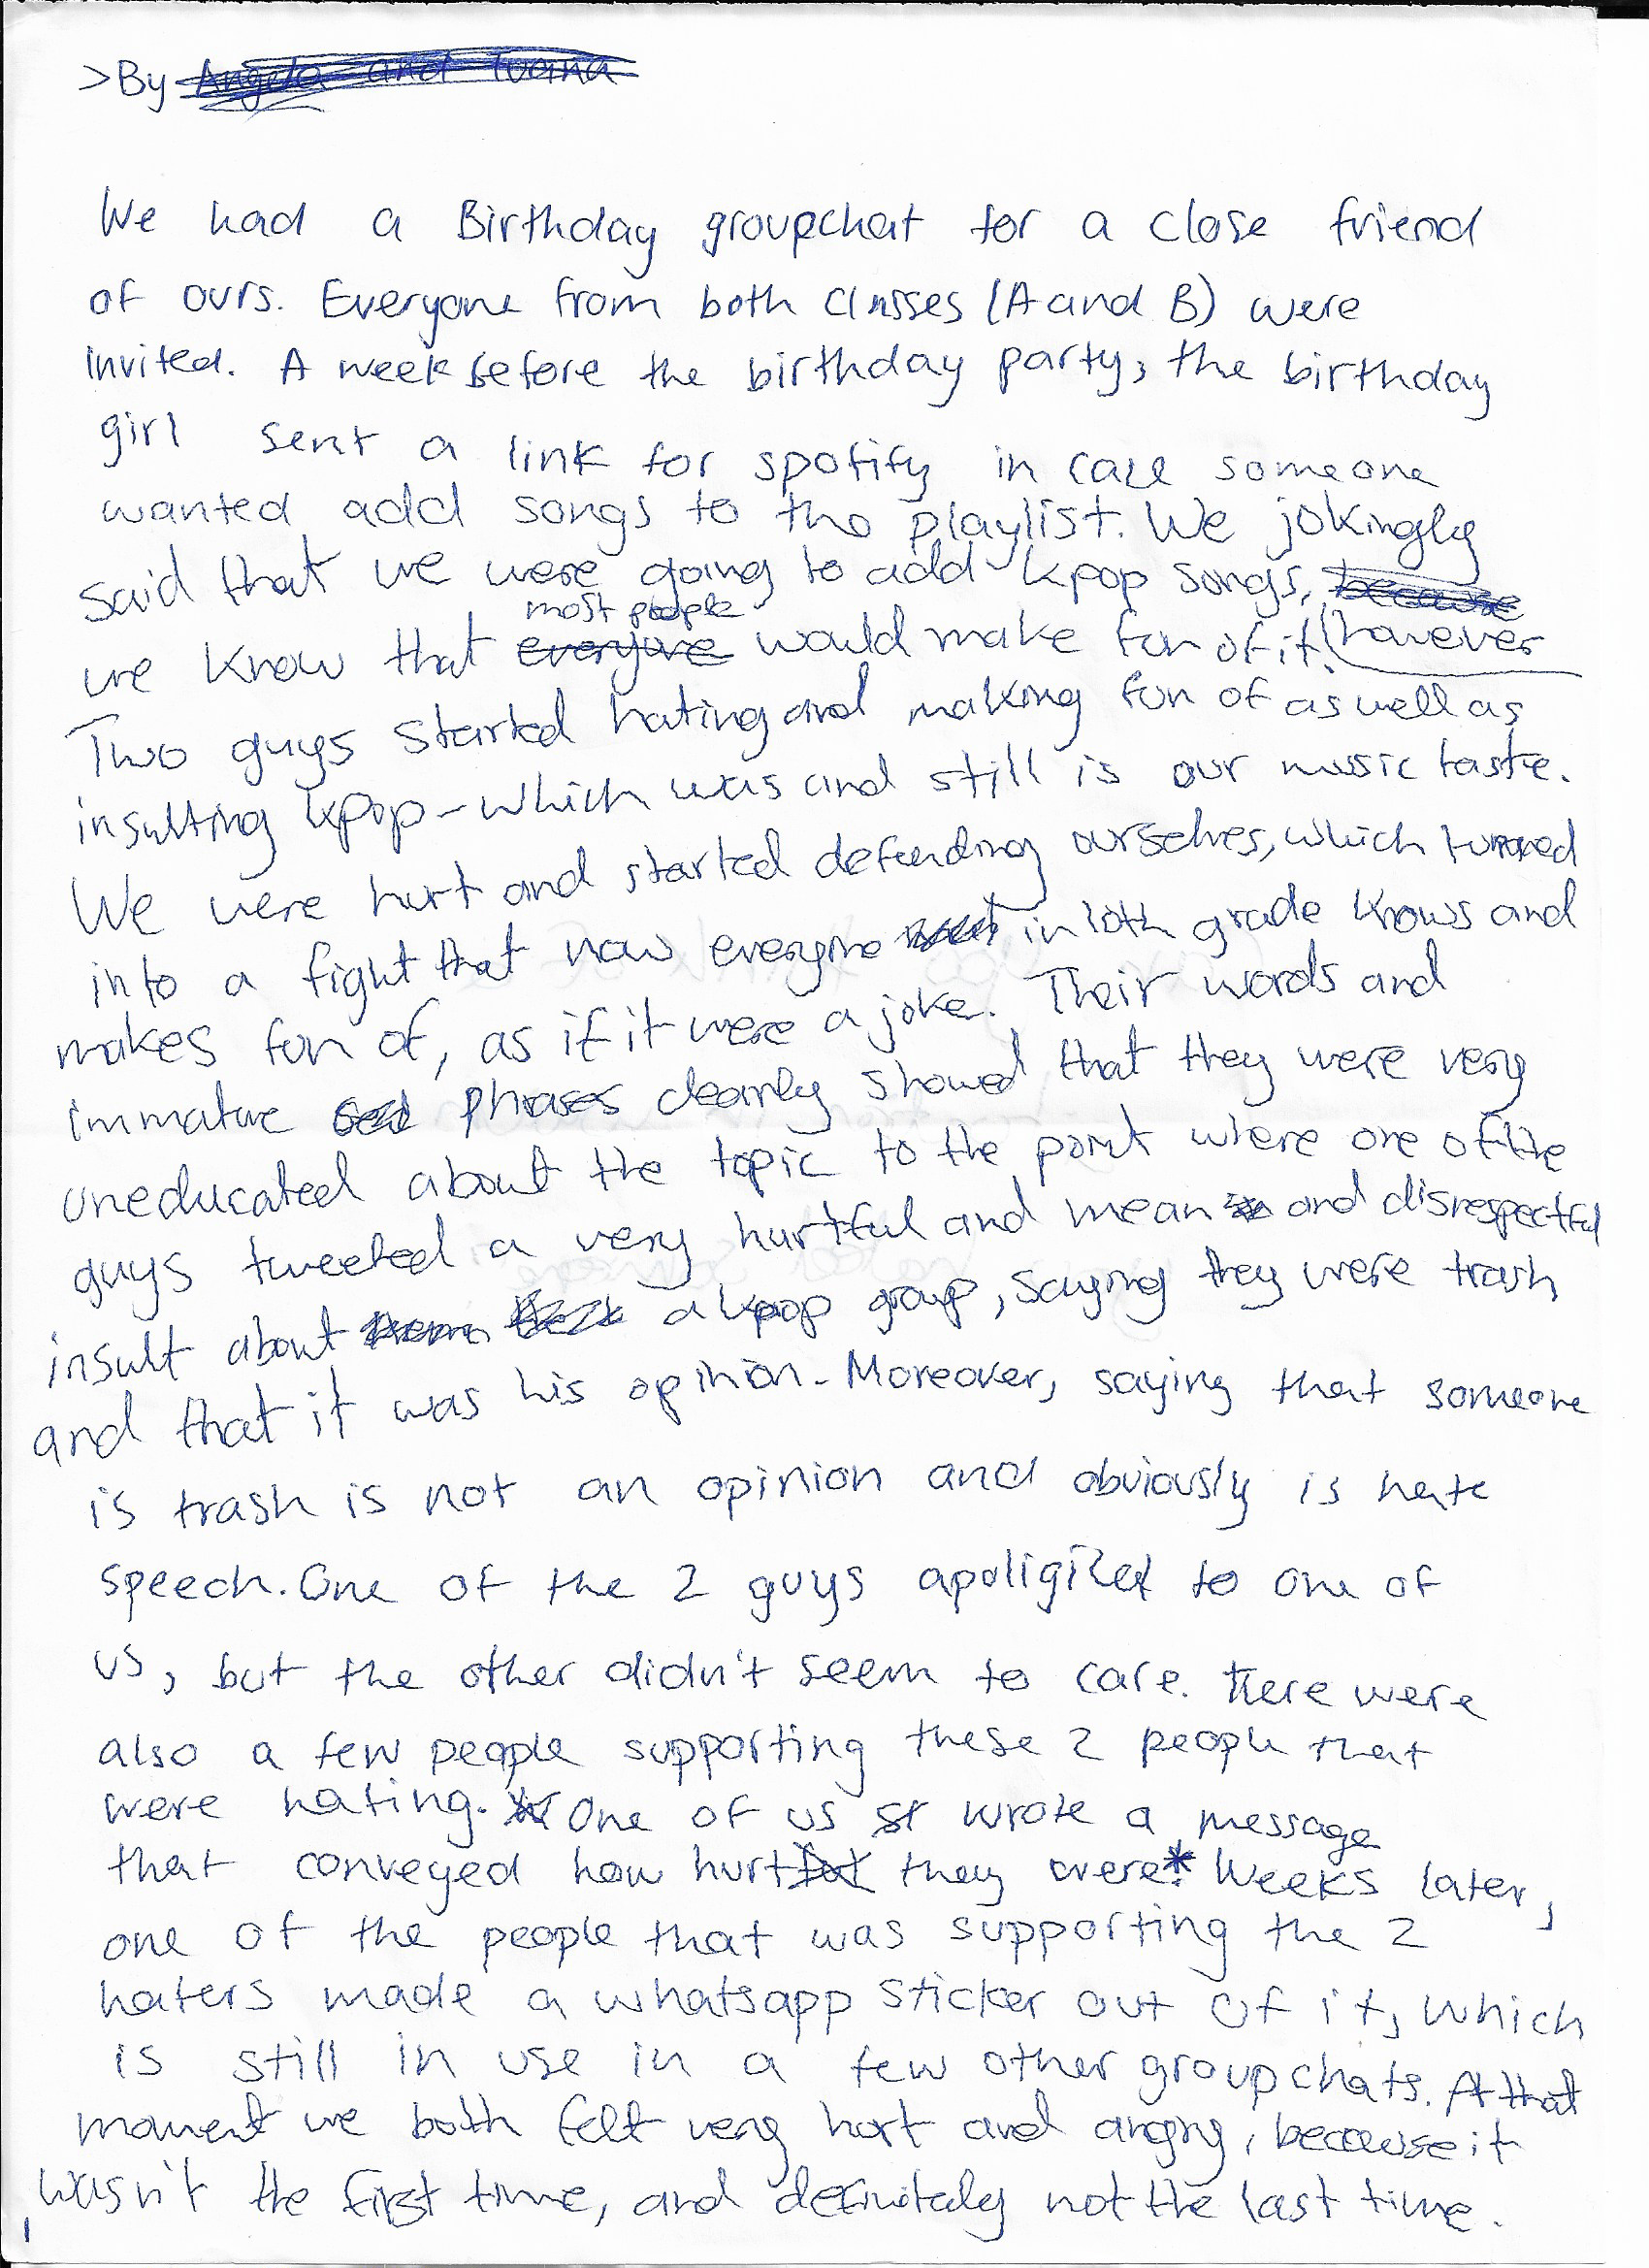 >By
We had a Birthday groupchat for a close friend
of ours. Everyone from both classes (A and B) were
invited. A week before the birthday party, the birthday
girl sent a link for spotify in case someone
wanted add songs to the playlist. We jokingly
said that we were going to add kpop songs, because
most people
we know that everyone would make fun of it. (however
Two guys started hating and making fun of as well as
insulting kpop - which was and still is our music taste.
We were hurt and started defending ourselves, which turned
into a fight that now everyone in 10th grade knows and
makes fun of, as if it were a joke. Their words and
immature phrases clearly showed that they were very
uneducated about the topic to the point where one of the
guys tweeted a very hurtful and mean and disrespectful
insult about a kpop group, saying they were trash
and that it was his opinion. Moreover, saying that someone
is trash is not an opinion and obviously is hate
speech. One of the 2 guys apoligized to one of
us, but the other didn't seem to care. There were
also a few people supporting these 2 people that
were hating. One of us wrote a message
that conveyed how hurt they were.* Weeks later,
one of the people that was supporting the 2
haters made a whatsapp sticker out of it, which
is still in use in a few other groupchats. At that
moment we both felt very hurt and angry, because it
wasn't the first time, and definitely not the last time.